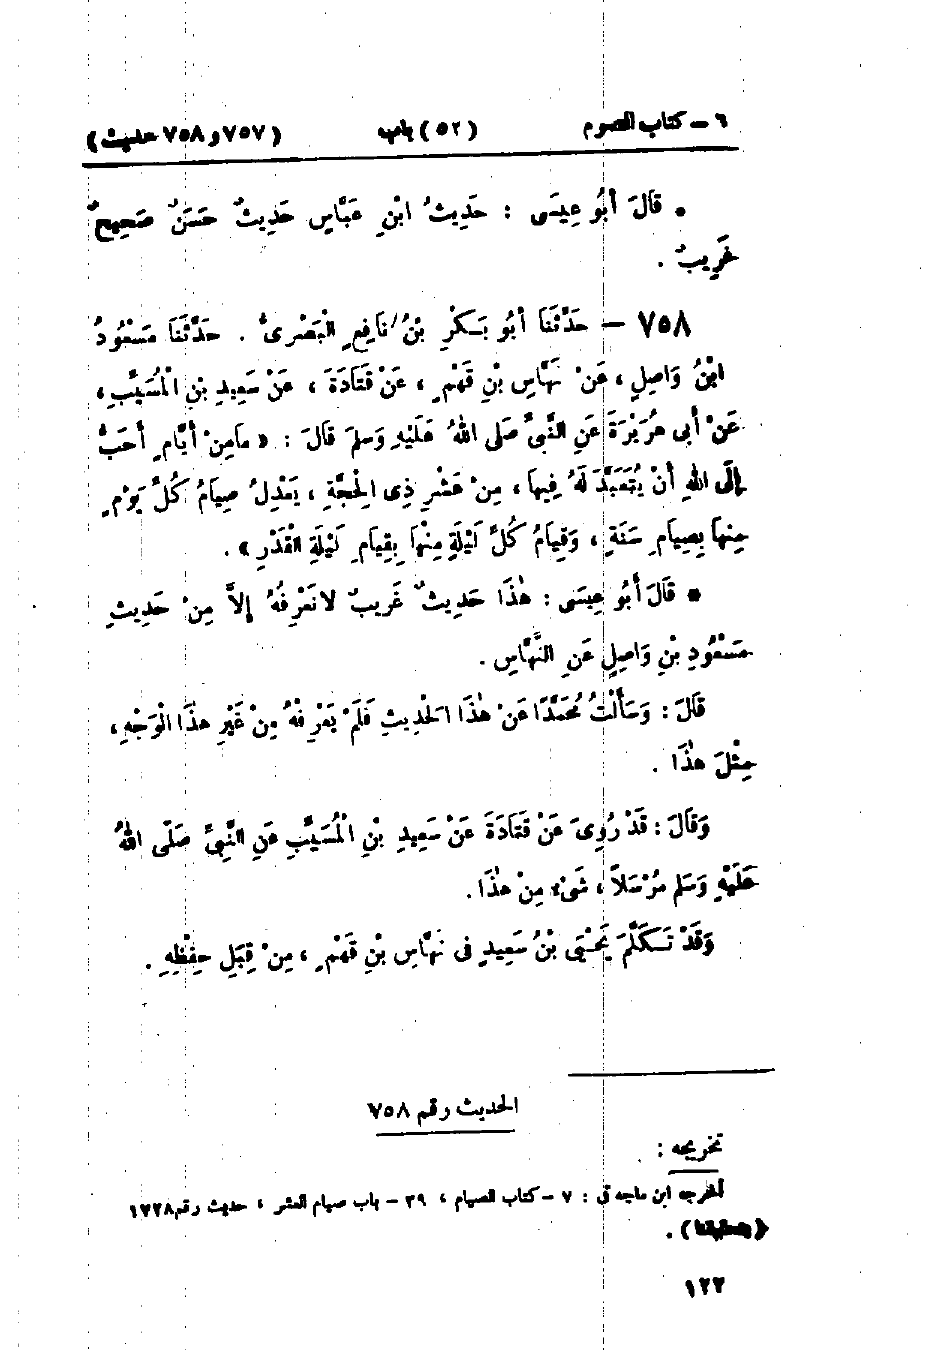 ٦ – كتاب الصوم (٥٢) باب (٧٥٧ و ٧٥٨ حديث)
• قَالَ أَبُو عِيسَى : حَدِيثُ ابْنِ عَبَّاسٍ حَدِيثٌ حَسَنٌ صَحِيحٌ
غَرِيبٌ .
٧٥٨ – حَدَّثَنَا أَبُو بَكْرِ بْنُ نَافِعٍ الْبَصْرِىُّ . حَدَّثَنَا مَسْعُودُ
ابْنُ وَاصِلٍ ، عَنْ نَهَّاسِ بْنِ قَهْمٍ ، عَنْ قَتَادَةَ ، عَنْ سَعِيدِ بْنِ الْمُسَيَّبِ ،
عَنْ أَبِى هُرَيْرَةَ عَنِ النَّبِىِّ صَلى اللهُ عَلَيْهِ وَسَلمَ قَالَ : « مَامِنْ أَيَّامٍ أَحَبُّ
إِلَى اللهِ أَنْ يُتَعَبَّدَ لَهُ فِيهَا ، مِنْ عَشْرِ ذِى الْحِجَّةِ ، يَعْدِلُ صِيَامُ كُلِّ يَوْمٍ
مِنهَا بِصِيَامِ سَنَةٍ ، وَقِيَامُ كُلِّ لَيْلَةٍ مِنْهَا بِقِيَامِ لَيْلَةِ الْقَدْرِ » .
• قَالَ أَبُو عِيسَى : هٰذَا حَدِيثٌ غَرِيبٌ لَا نَعْرِفُهُ إِلاَّ مِنْ حَدِيثِ
مَسْعُودِ بْنِ وَاصِلٍ عَنِ النَّهَّاسِ .
قَالَ : وَسَأَلْتُ مُحَمَّدًا عَنْ هٰذَا الْحَدِيثِ فَلَمْ يَعْرِفْهُ مِنْ غَيْرِ هٰذَا الْوَجْهِ ،
مِثْلَ هٰذَا .
وَقَالَ : قَدْ رُوِىَ عَنْ قَتَادَةَ عَنْ سَعِيدِ بْنِ الْمُسَيَّبِ عَنِ النَّبِىِّ صَلَّى اللهُ
عَلَيْهِ وَسَلم مُرْسَلاً ، شَىْءٌ مِنْ هٰذَا .
وَقَدْ تَكَلَّمَ يَحْيَى بْنُ سَعِيدٍ فِى نَهَّاسِ بْنِ قَهْمٍ ، مِنْ قِبَلِ حِفْظِهِ .
الحديث رقم ٧٥٨
تخريجه :
أخرجه ابن ماجه فى : ٧ – كتاب الصيام ، ٣٩ – باب صيام العشر ، حديث رقم ١٧٢٨
(بتحقيقنا) .
١٢٢